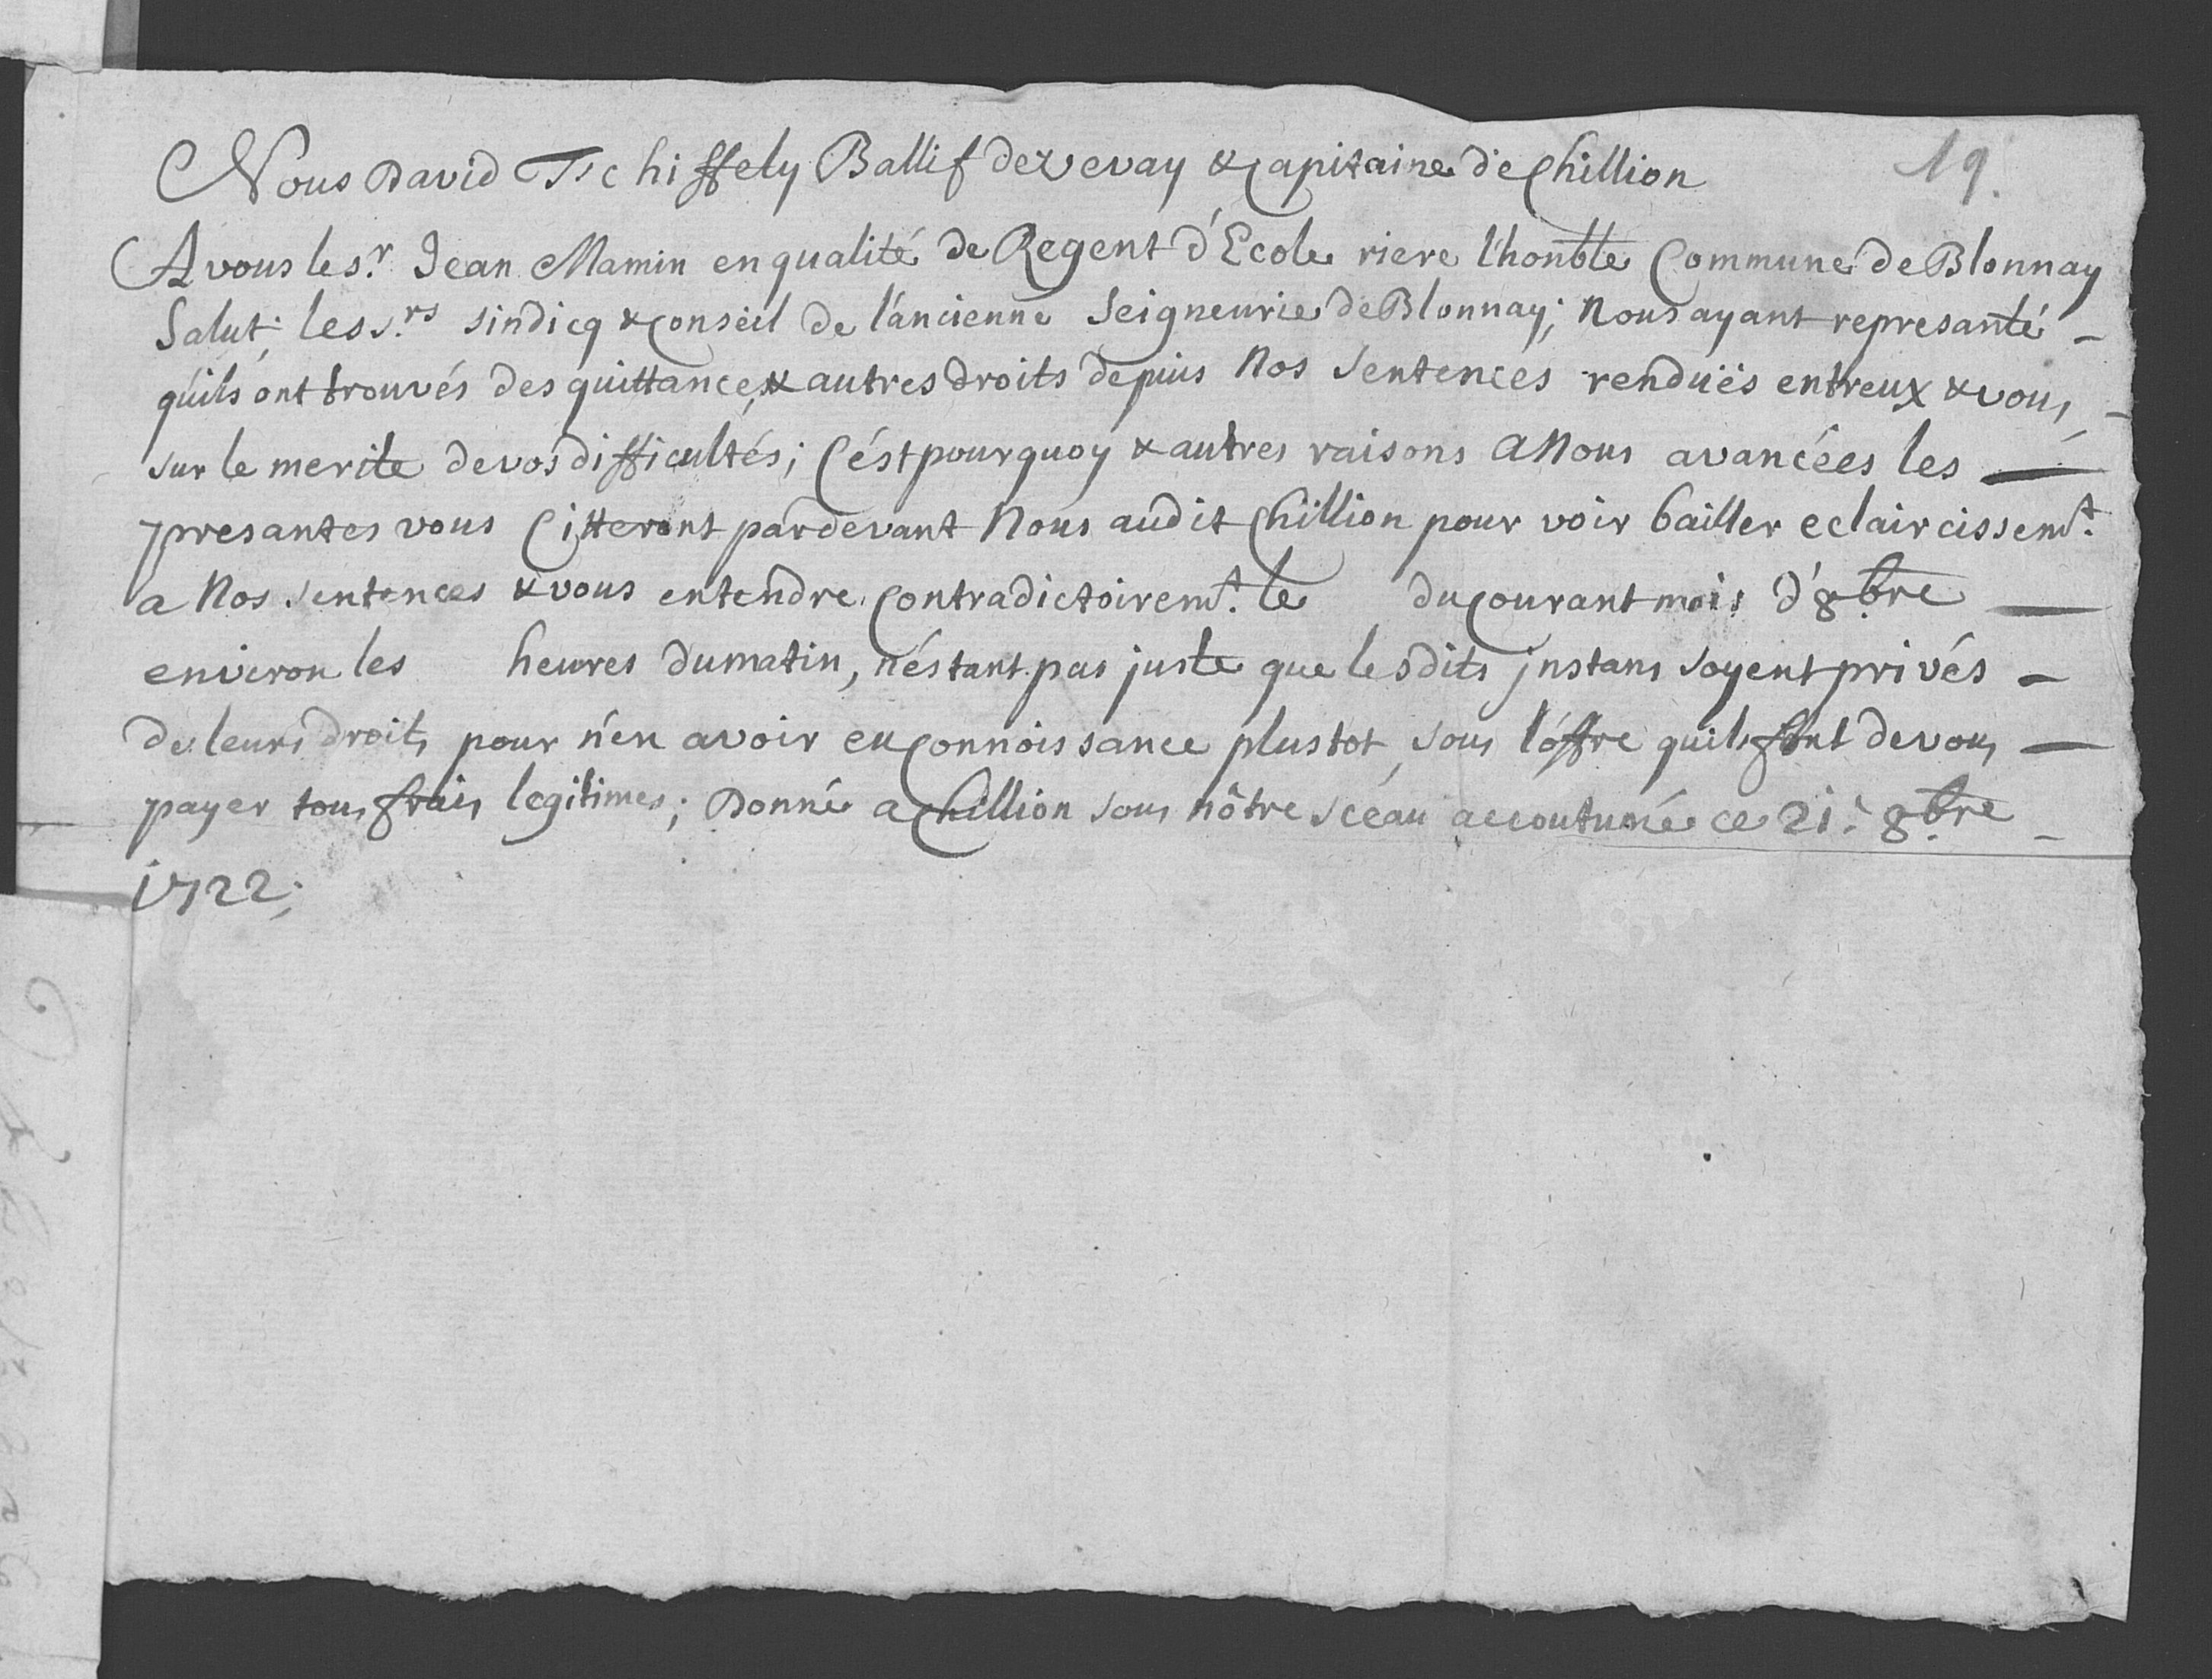 19.
Nous David Tschiffely Ballif de Vevay & Capitaine de Chillion
A vous le s.r Jean Mamin en qualité de Regent d'Ecole riere l'honble Commune de Blonnay
Salut; les s.rs sindicq & Conseil de l'ancienne Seigneurie de Blonnay; Nous ayant represanté -
quils ont trouvés des quittances & autres droits depuis Nos Sentences renduës entreux & vous, -
sur le merite de vos difficultés; C'ést pourquoy & autres raisons a Nous avancées les —
presantes vous Citteront pardevant Nous audit Chillion pour voir bailler eclaircissem.t
a Nos Sentences & vous entendre Contradictoirem.t le du Courant mois d'8bre —
environ les heures du matin, n'éstant pas juste que lesdits jnstans soyent privés -
de leurs droits pour n'en avoir eu Connoissance plustot, sous l'offre quils font de vous —
payer tous frais legitimes; Donné a Chillion sous nôtre sceau accoutumé ce 21: 8bre -
1722;